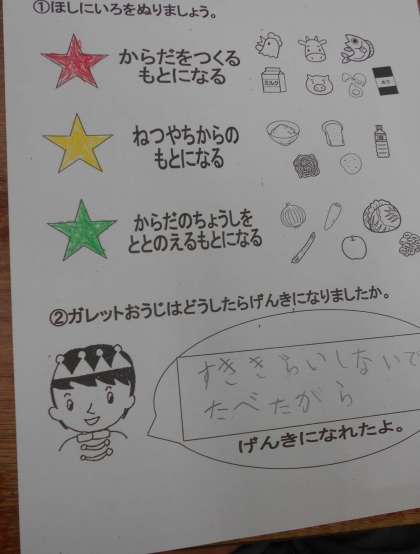 ①ほしにいろをぬりましょう。
からだをつくる
もとになる
ミルク
ねつやちからの
もとになる
からだのちょうしを
ととのえるもとになる
②ガレットおうじはどうしたらげんきになりましたか。
すききらいしないで
たべたから
げんきになれたよ。